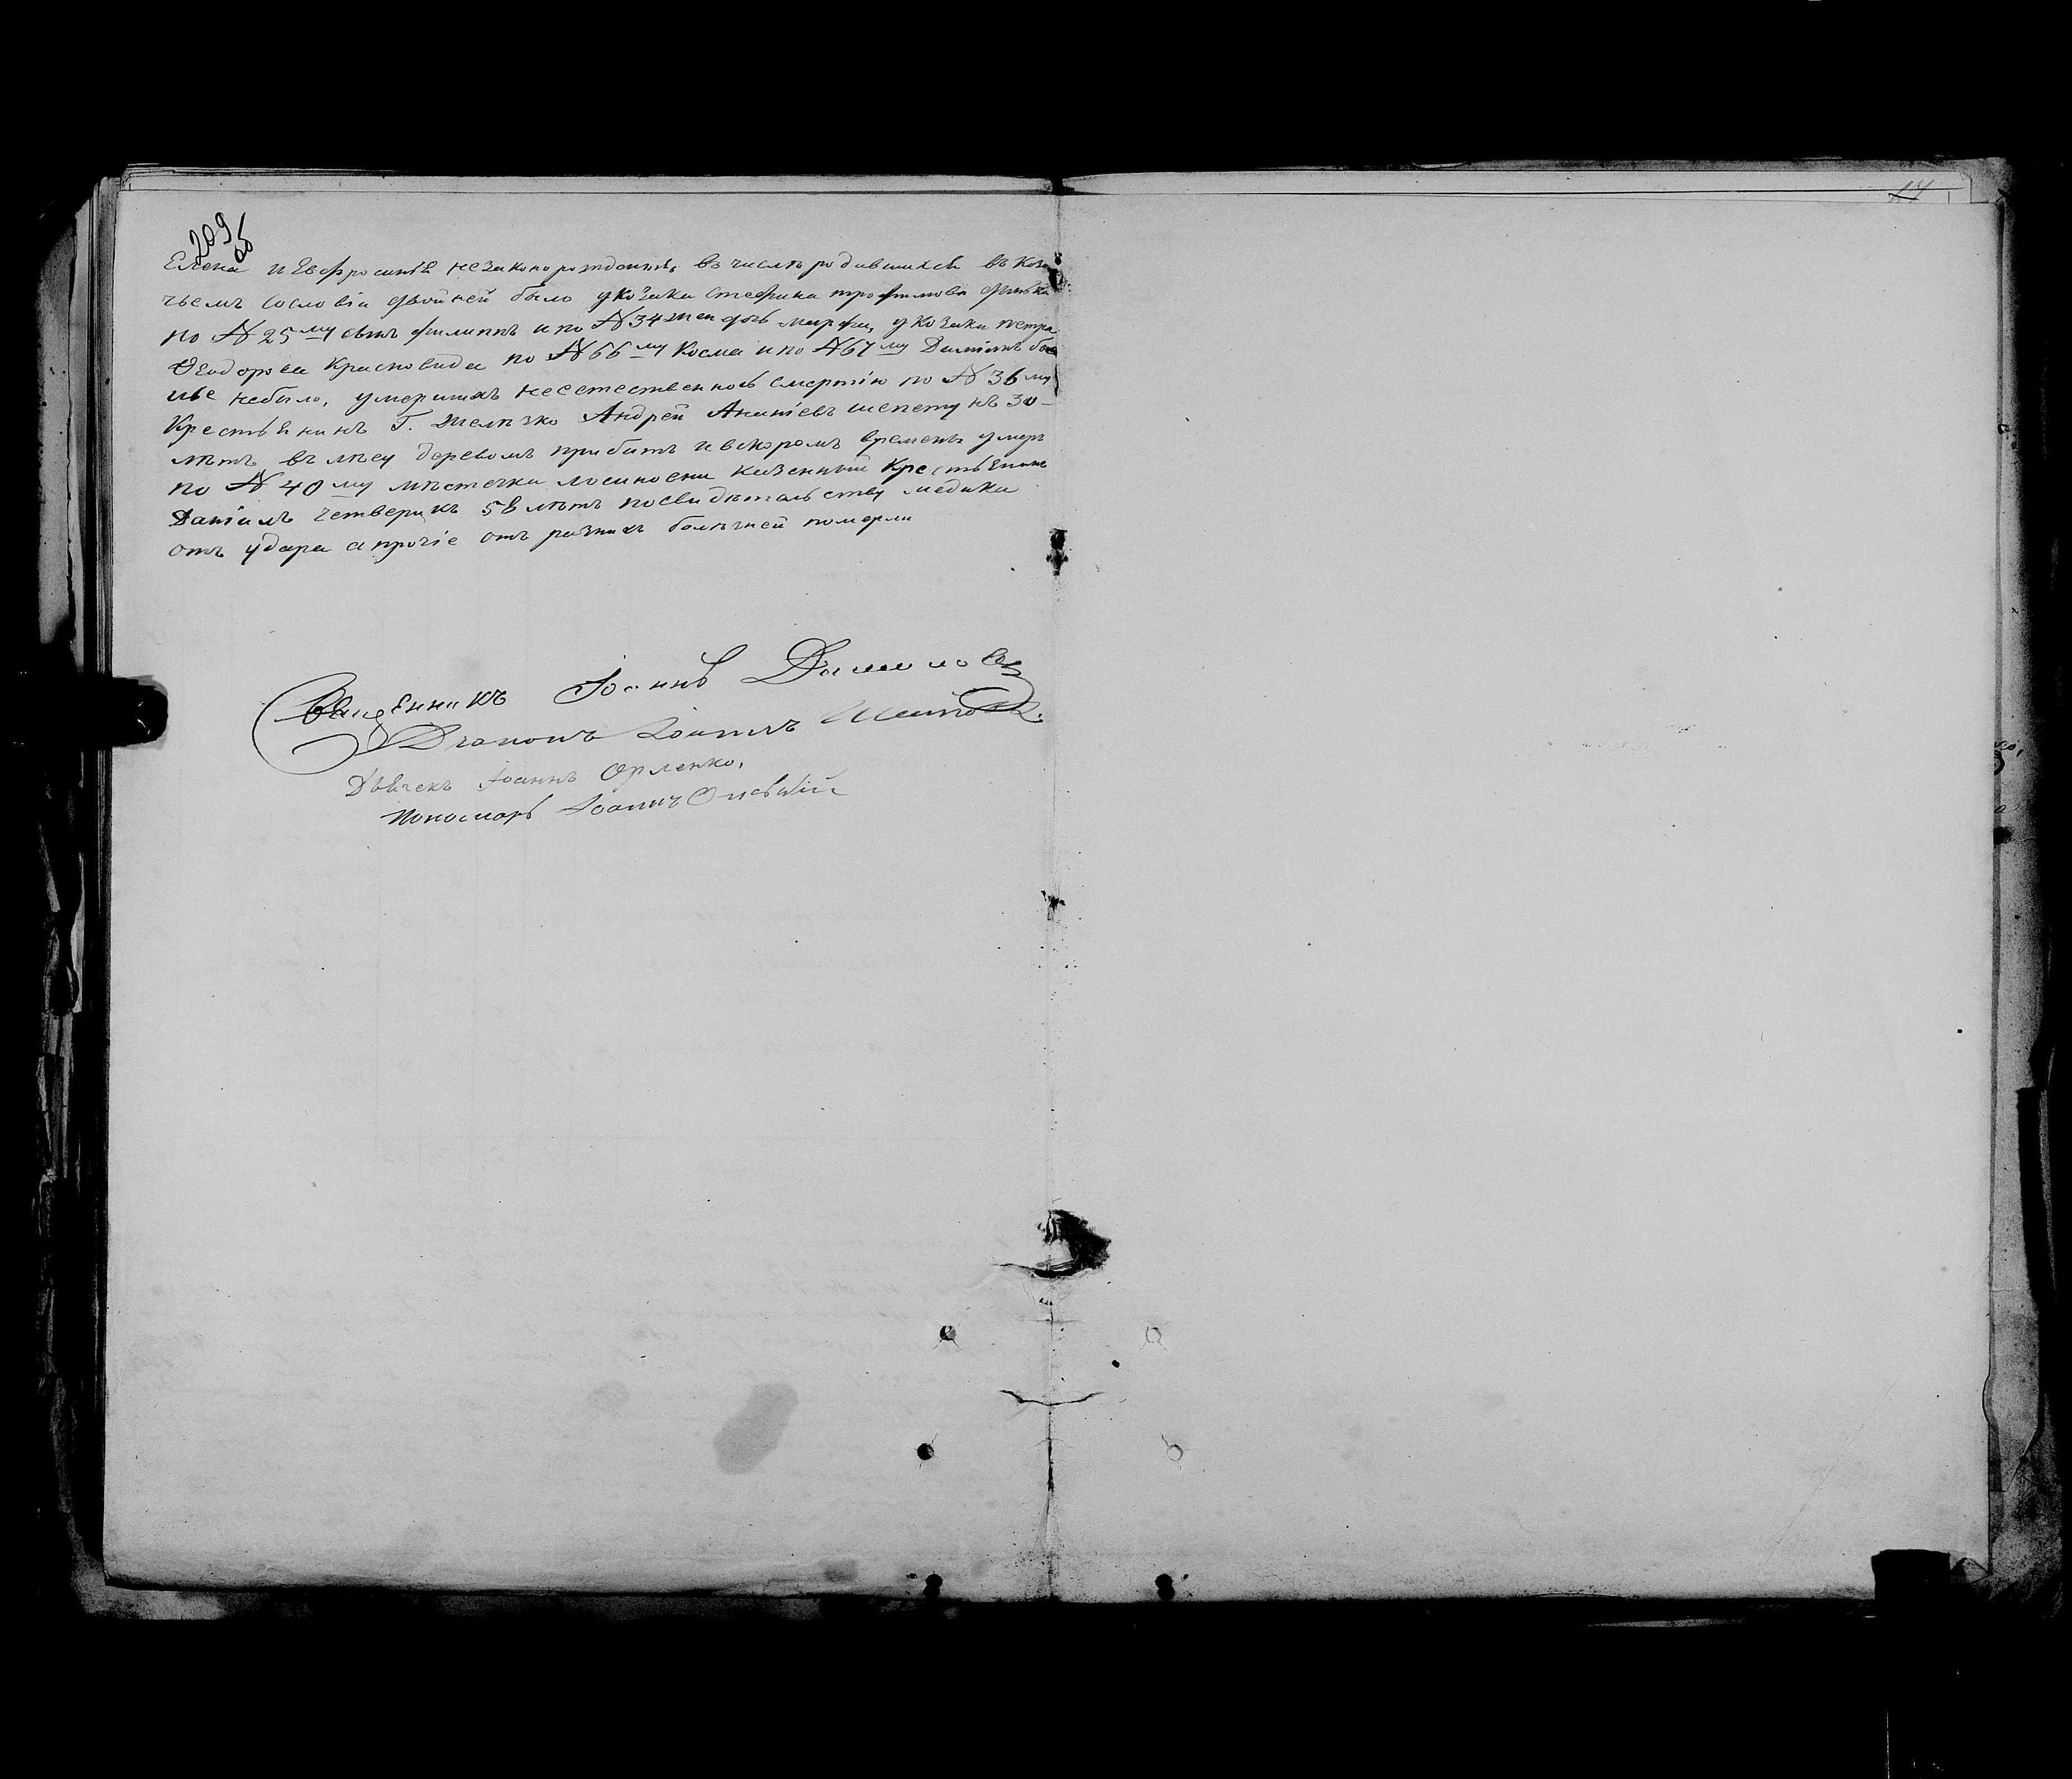 209
об
14
Елена и Евфросинія незаконорожденныя, въ числѣ родившихся въ Коза
чьемъ сословіи двойней было у Козака Стефана Трофимова
по № 25му сынъ Филиппъ и по № 34 жен дочь Марфа, у Козака Петра
Ѳеодорова Красновида по № 66му Косма и по № 67му Даміанъ бо
лѣе небыло, умершихъ несетественною смертію по № 36му
Крестьянинъ Г. Желѣзко Андрей Ананіевъ Шепету нъ 30-
лѣтъ въ лѣсу деревомъ прибитъ и вскоромъ времени умеръ
по № 40му мѣстечка Лосиновки казенный Крестьянинъ
Даніилъ Четверикъ 58 лѣтъ посвидѣтельству медика
отъ удара а прочіе отъ разныхъ болѣзней померли
Священникъ Іоаннъ
Діаконъ
Дьячекъ Іоаннъ Орленко,
Пономарь Іоаннъ